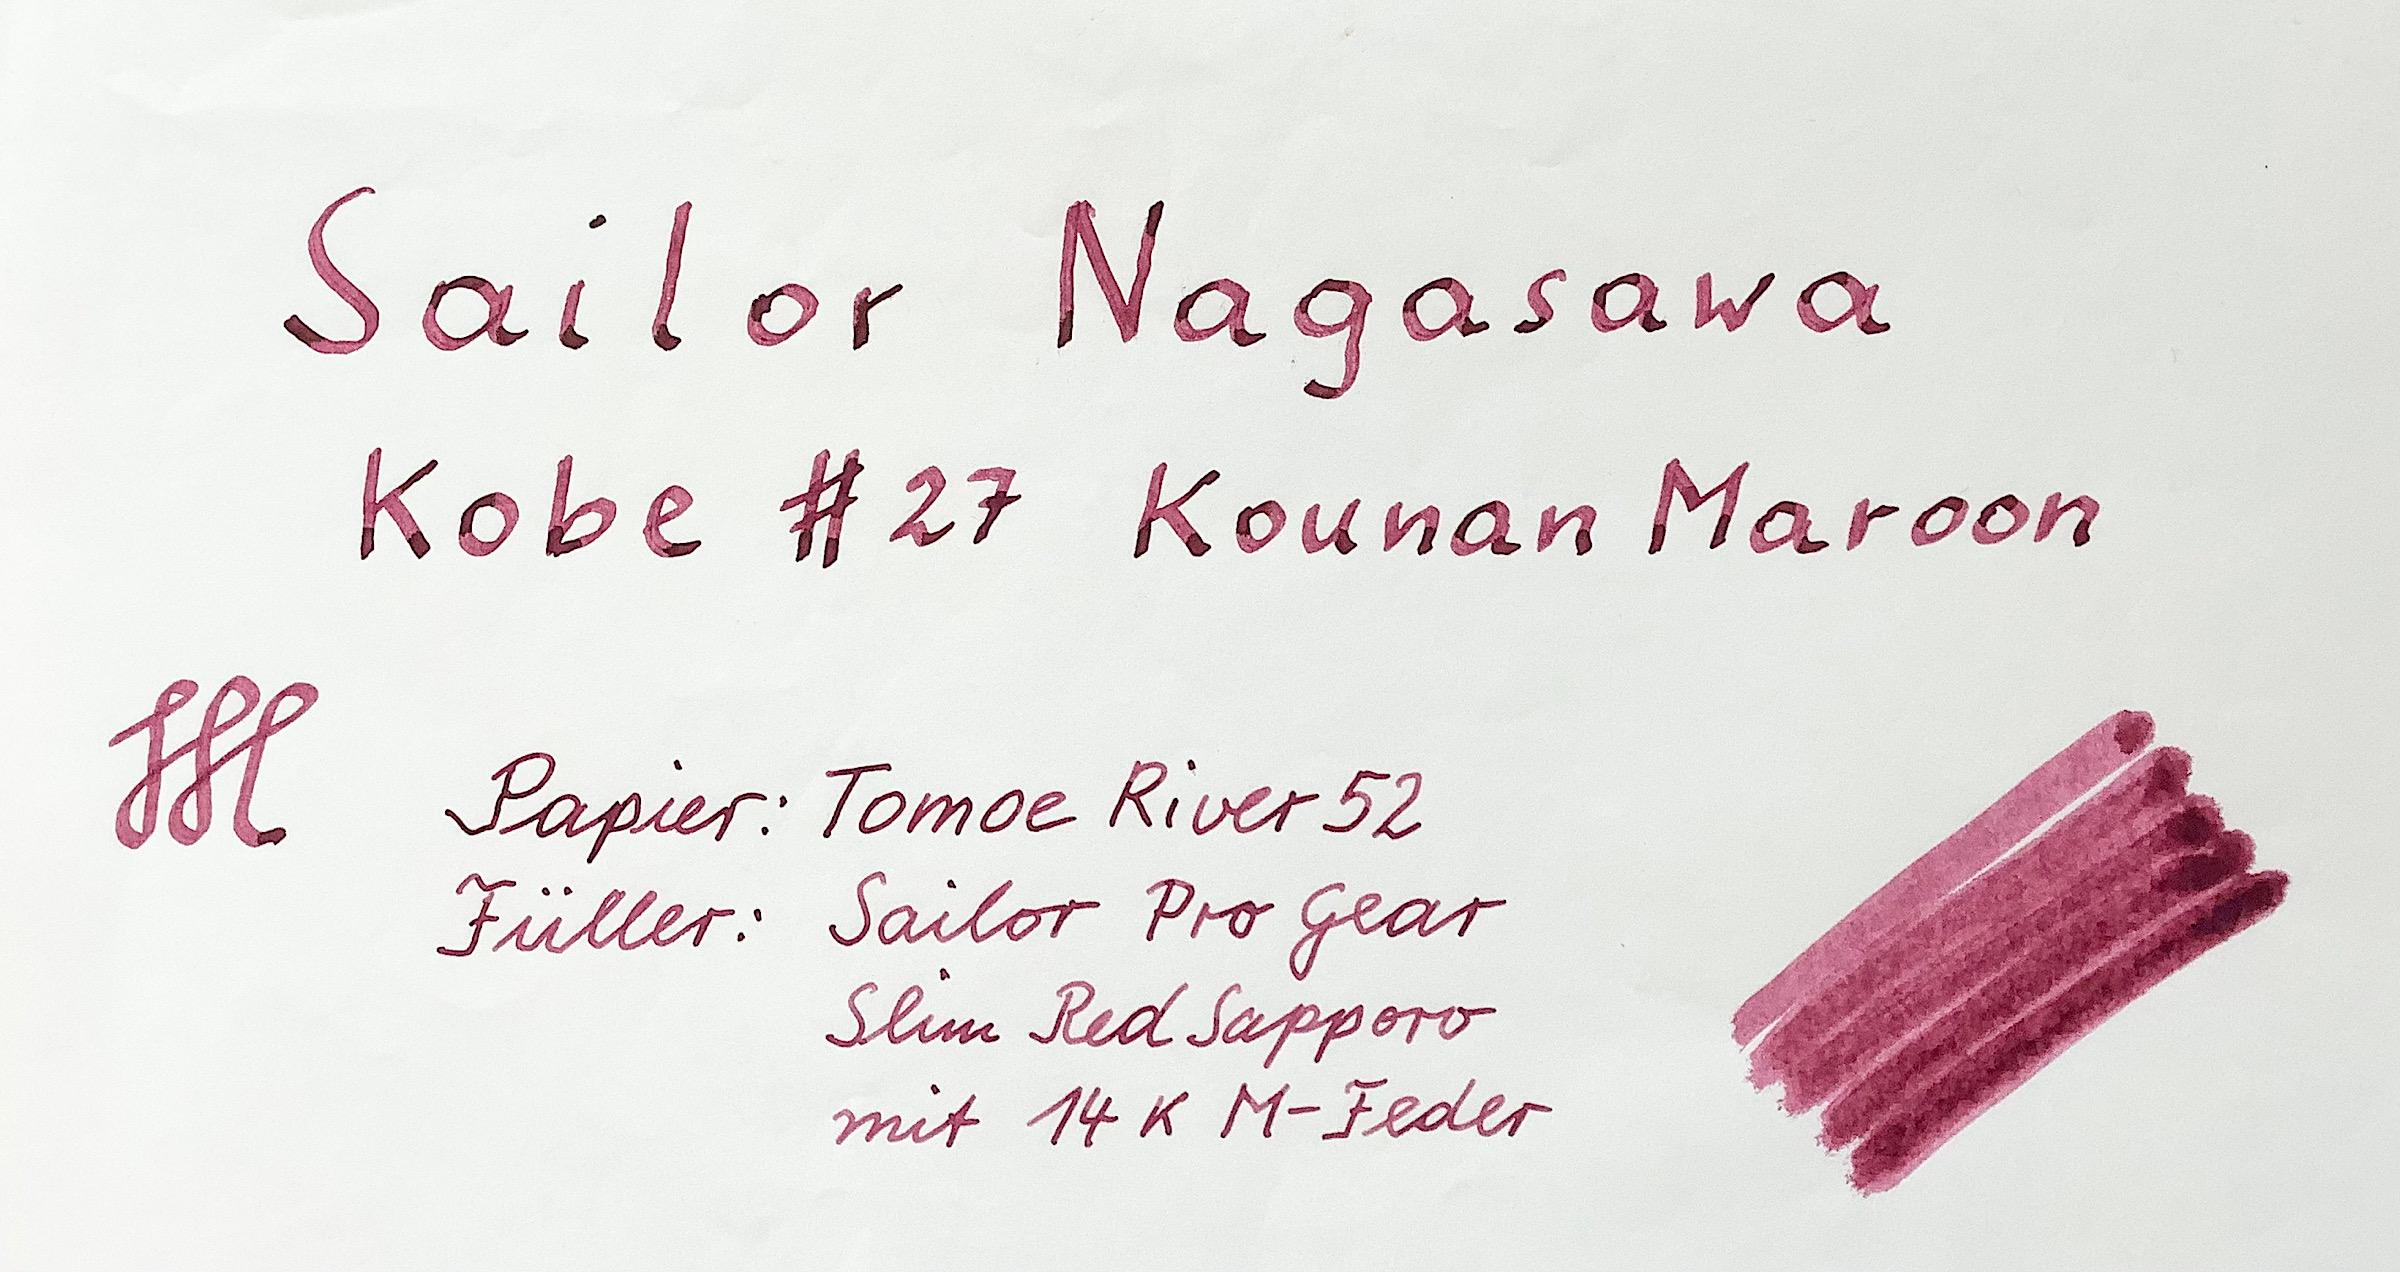 Sailor Nagasawa
Kobe #27 Kounan Maroon
Papier: Tomoe River 52
Füller: Sailor Pro Gear
Slim Red Sapporo
mit 14 K M-Feder